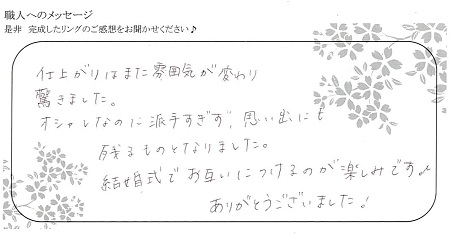 職人へのメッセージ
是非 完成したリングのご感想をお聞かせください♪
仕上がりはまた雰囲気が変わり
驚きました。
オシャレなのに派手すぎず、思い出にも
残るものとなりました。
結婚式でお互いにつけるのが楽しみです♪
ありがとうございました！